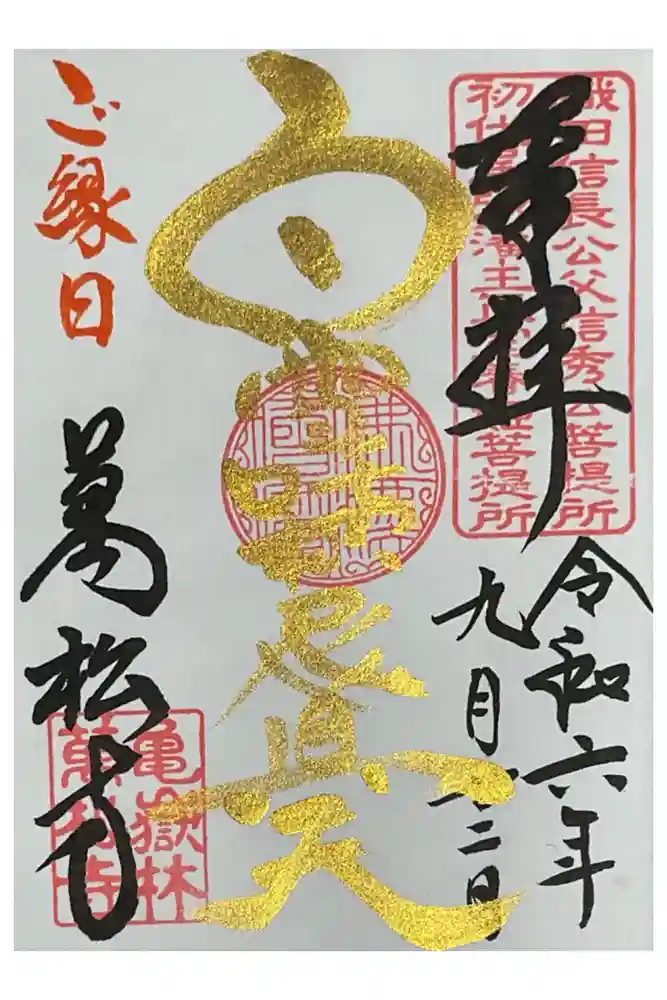 奉拝
織田信長公父信秀公菩提所
初代尾張藩主正室春姫菩提所
令和六年
九月廿二日
白雪吒枳尼真天
ご縁日
萬松寺
亀嶽林
萬松寺